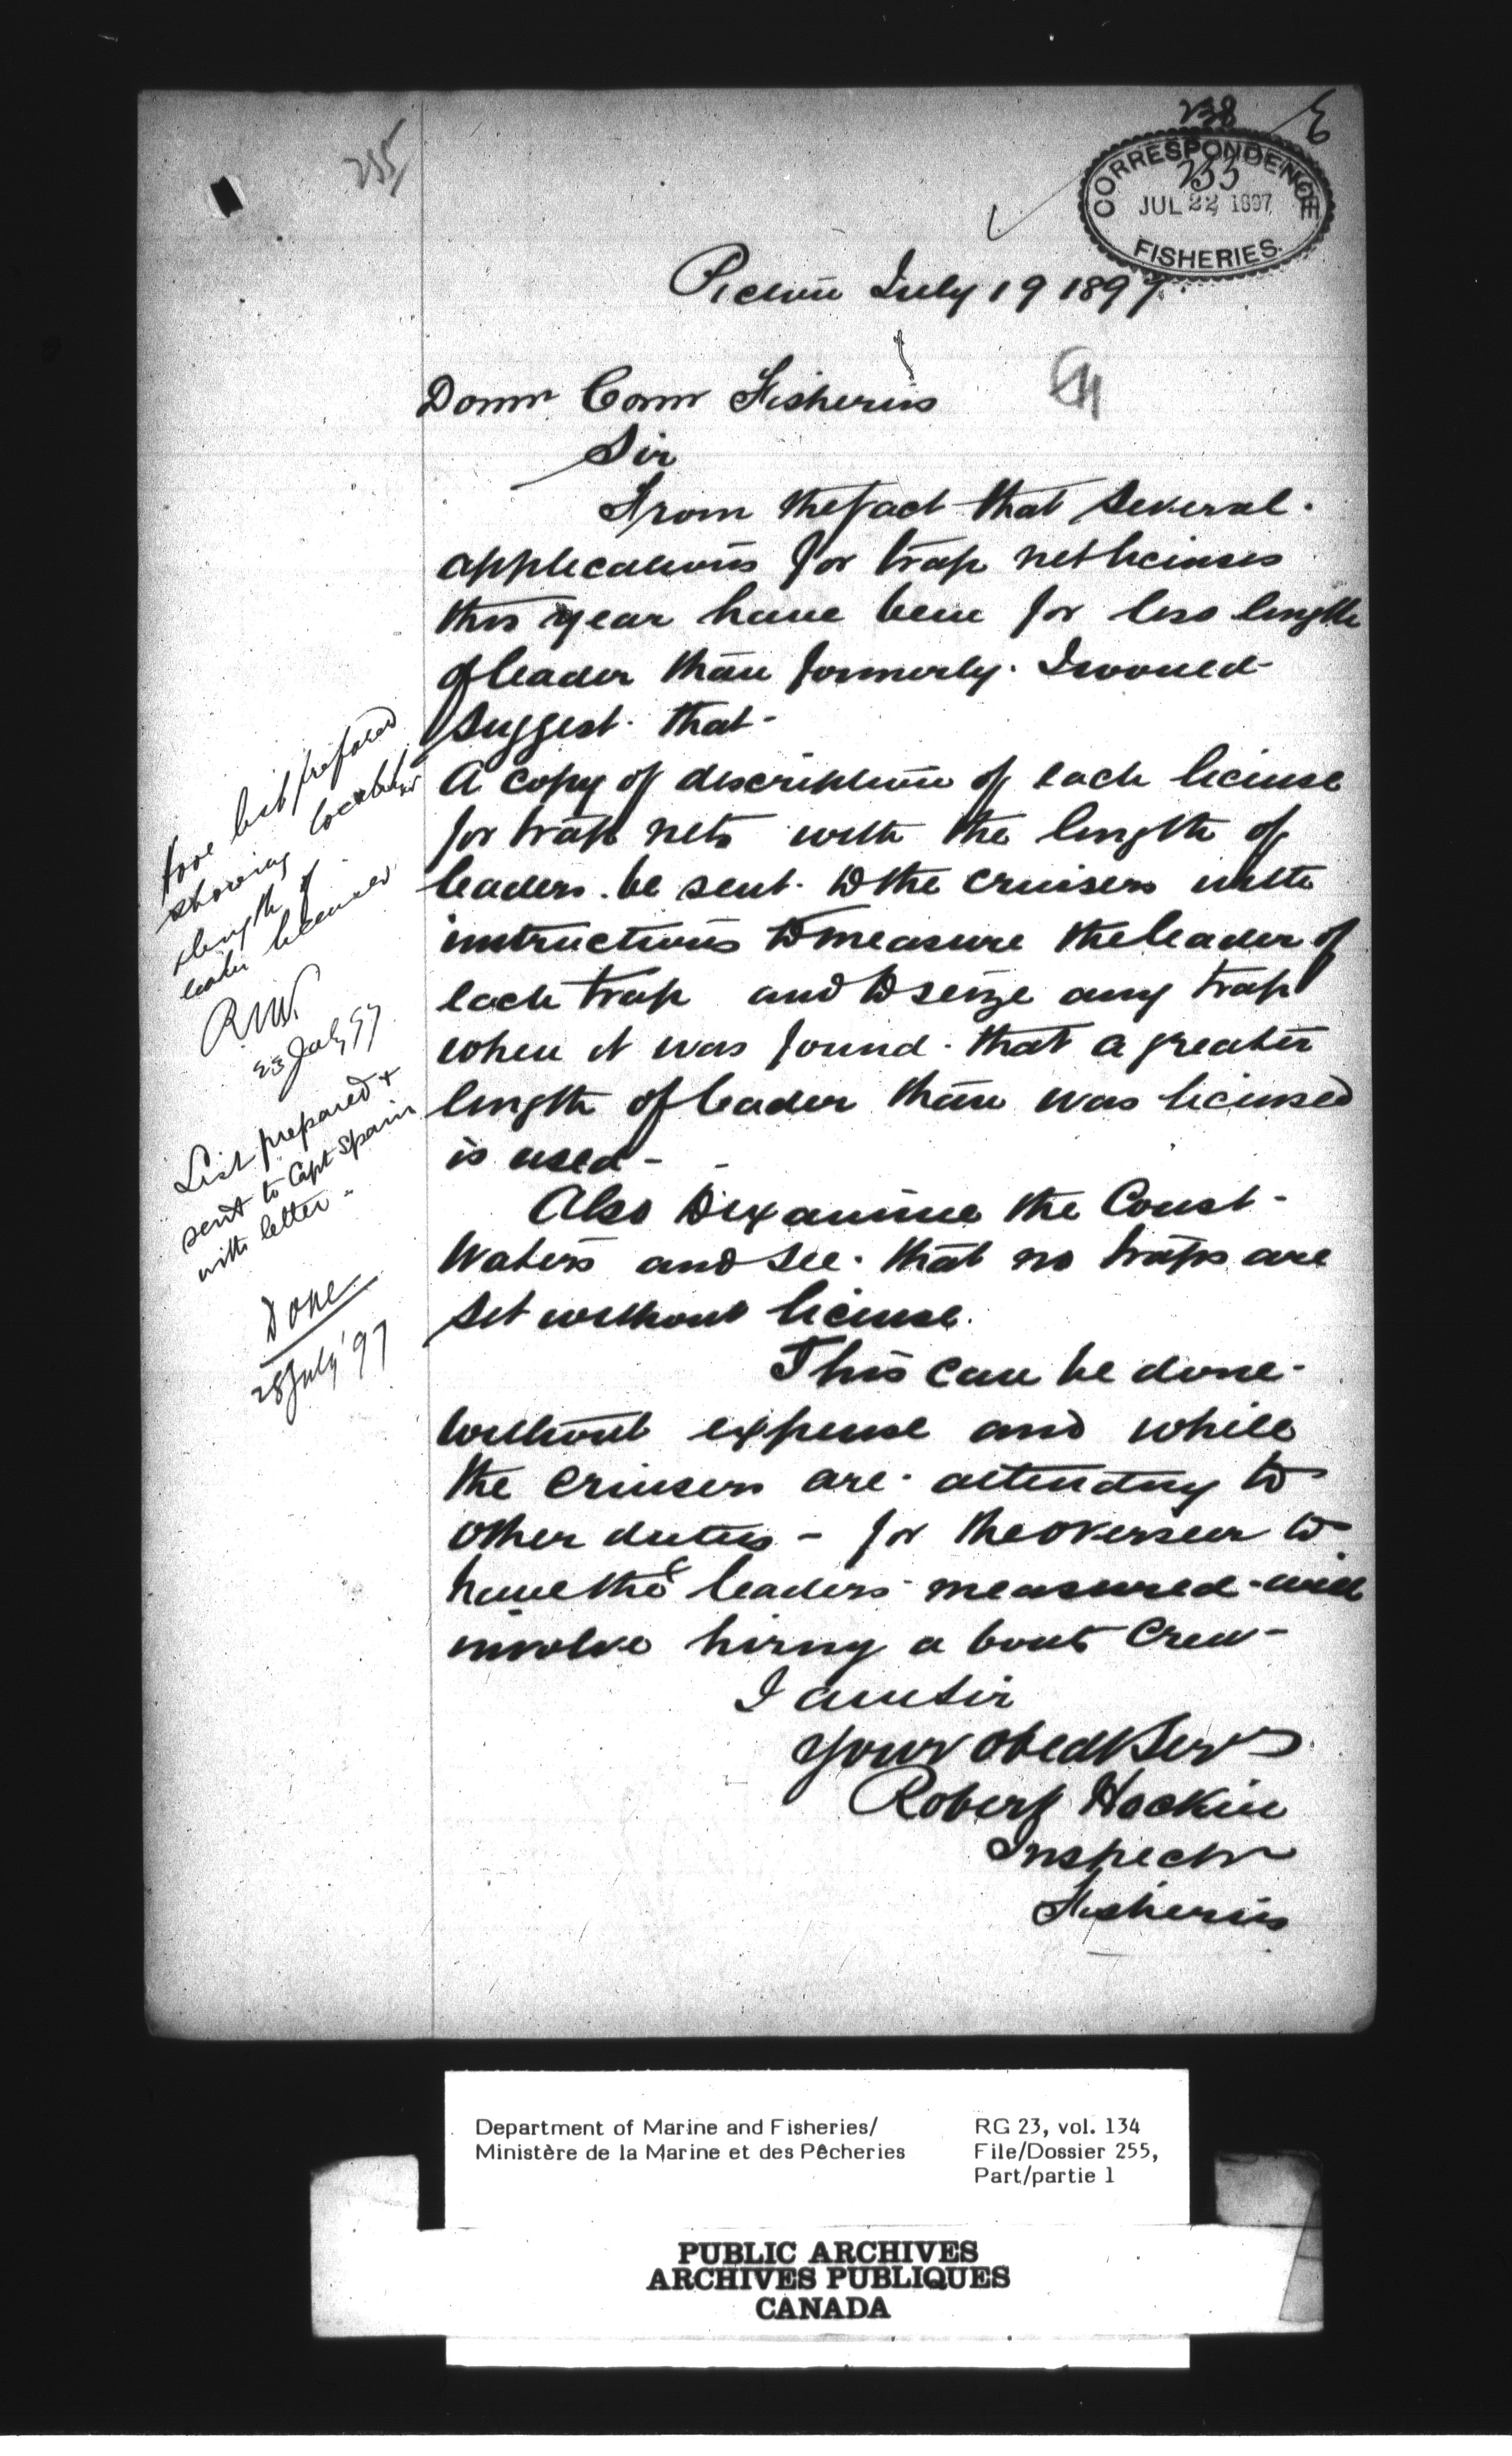 238
E
255
CORRESPONDENCE
255
JUL 22 1897
FISHERIES.
Pictou July 19 1897.
Domn Comr Fisheries
Sir
From the fact that several
applications for trap net licenses
this year have been for less length
of leader than formerly. I would
suggest that -
A copy of description of each license
for trap nets with the length of
leaders be sent to the cruisers with
instructions to measure the leader of
each trap and to seize any trap
when it was found that a greater
length of leader than was licensed
is used -
Also to examine the Coast
Waters and see that no traps are
set without license.
This can be done
without expense and while
the cruisers are attending to
other duties - for the overseer to
have the leaders measured will
involve hiring a boats crew -
I am Sir
your obed Servt
Robert Hockin
Inspector
Fisheries
have list prepared
showing location
& length of
leader licensed
R.N.V.
23 July 97
List prepared &
sent to Capt Spain
with letter -
Done
28 July '97
Department of Marine and Fisheries/
Ministère de la Marine et des Pêcheries
RG 23, vol. 134
File/Dossier 255,
Part/partie 1
PUBLIC ARCHIVES
ARCHIVES PUBLIQUES
CANADA